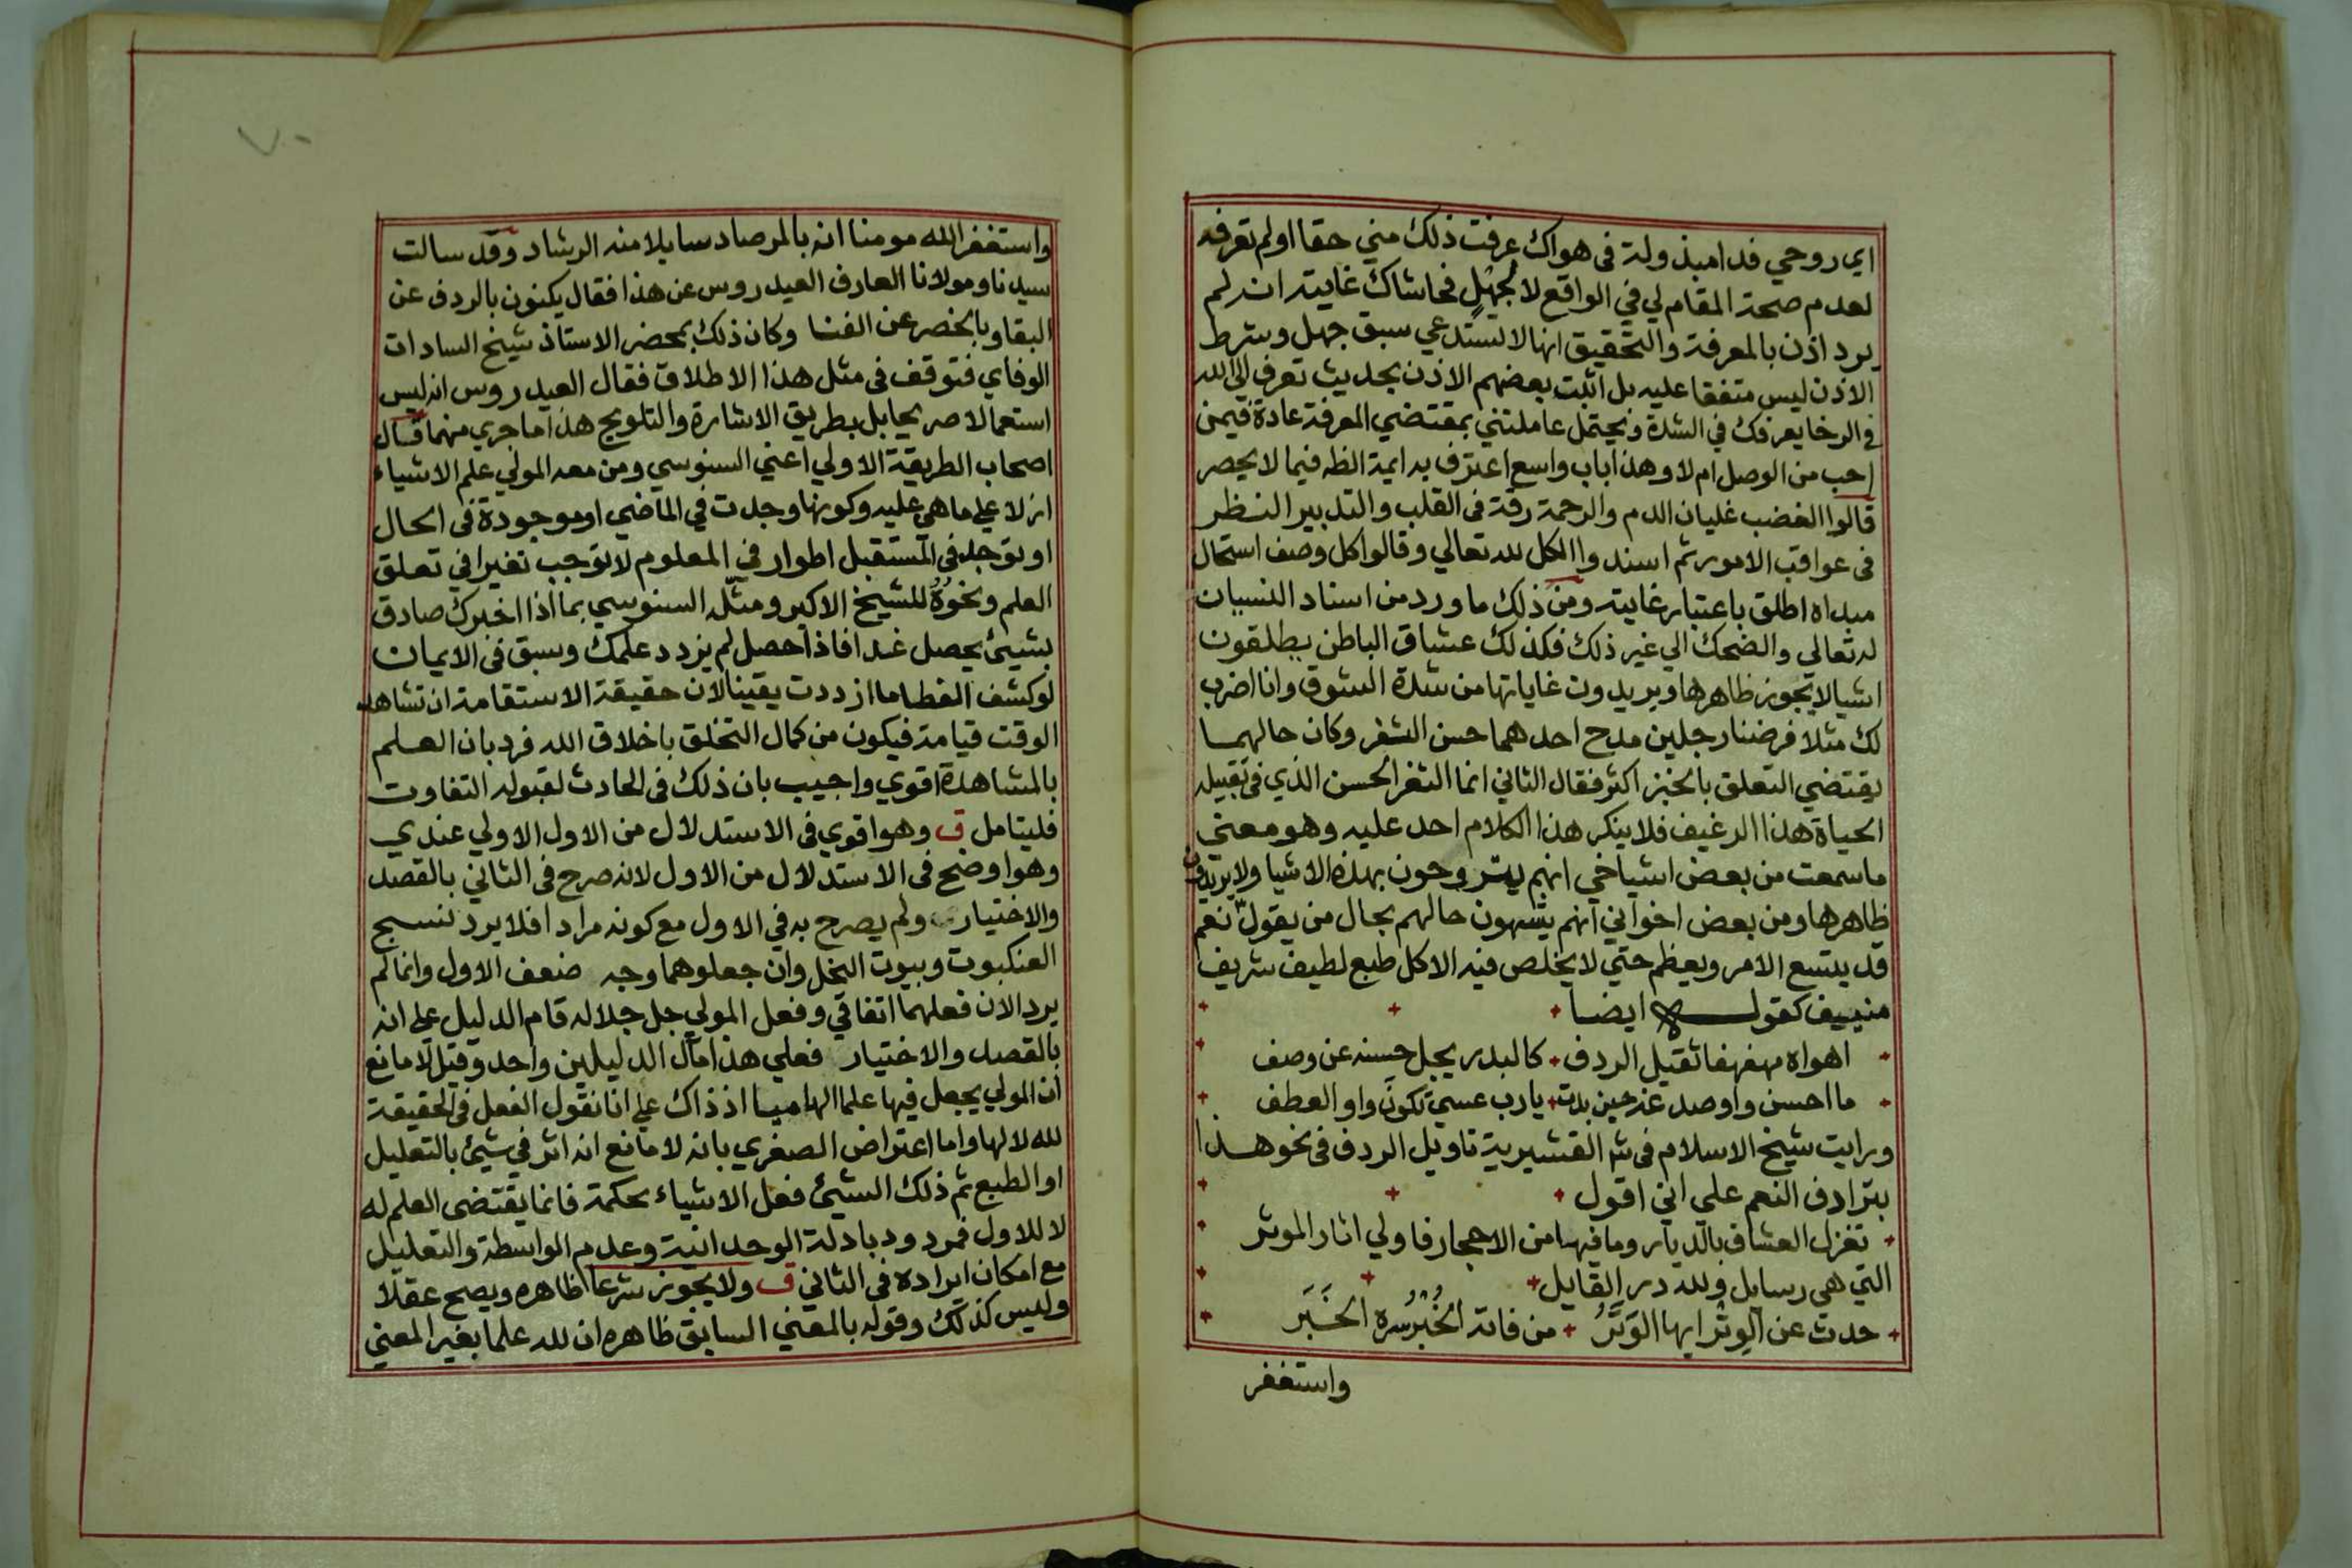 اي روحي فدا مبذولة في هواك عرفت ذلك مني حقا او لم تعرفه
لعدم صحة المقام لي في الواقع لا لجهل فحاشاك غايته انه لم
يرد اذن بالمعرفة والتحقيق انها لا تستدعي سبق جهل وشرط
الاذن ليس متفقا عليه بل اثبت بعضهم الاذن بحديث تعرف الي الله
في الرخا يعرفك في الشدة ويحتمل عاملتني بمقتضي المعرفة عادة فيمن
احب من الوصل ام لا وهذا باب واسع اعترف به ايمة الظه فيما لا يحصر
قالوا الغضب غليان الدم والرحمة رقة في القلب والتدبير النظر
في عواقب الامور ثم اسندوا الكل لله تعالي وقالوا كل وصف استحال
مبداه اطلق باعتبار غايته ومن ذلك ما ورد من اسناد النسيان
له تعالي والضحك الي غير ذلك فكذلك عشاق الباطن يطلقون
اشيا لا يجوز ظاهرها ويريدون غاياتها من شدة الشوق وانا اضرب
لك مثلا فرضنا رجلين مدح احدهما حسن الثغر وكان حالهما
يقتضي التعلق بالخبز اكثر فقال الثاني انما الثغر الحسن الذي في تقبيله
الحياة هذا الرغيف فلا ينكر هذا الكلام احد عليه وهو معني
ما سمعت من بعض اشياخي انهم يتروحون بهذه الاشيا ولا يريدون
ظاهرها ومن بعض اخواني انهم يشبهون حالهم بحال من يقول نعم
قد يتسع الامر ويعظم حتي لا يخلص فيه الا كل طبع لطيف شريف
منيف كقوله ايضا
اهواه مهفهفا ثقيل الردف كالبدر يجل حسنه عن وصف
ما احسن واو صدغه حين بدت يا رب عسي تكون واو العطف
ورايت شيخ الاسلام في شر القشيرية تاويل الردف في نحو هذا
بترادف النعم علي اني اقول
تغزل العشاق بالديار وما فيها من الاحجار فاولي اثار الموثر
التي هي رسايل ولله در القايل
حدث عن الوتر ايها الوتر من فاته الخبر سره الخبر
واستغفر
٧٠
واستغفر الله مومنا انه بالمرصاد سايلا منه الرشاد وقد سالت
سيدنا ومولانا العارف العيدروس عن هذا فقال يكنون بالردف عن
البقا وبالخصر عن الفنا وكان ذلك بمحضر الاستاذ شيخ السادات
الوفاي فتوقف في مثل هذا الاطلاق فقال العيدروس انه ليس
استعمالا صريحا بل بطريق الاشارة والتلويح هذا ما جري منهما قال
اصحاب الطريقة الاولي اعني السنوسي ومن معه المولي علم الاشياء
ازلا علي ما هي عليه وكونها وجدت في الماضي او موجودة في الحال
او توجد في المستقبل اطوار في المعلوم لا توجب تغيرا في تعلق
العلم ونحوه للشيخ الاكبر ومثله السنوسي بما اذا اخبرك صادق
بشيئ يحصل غدا فاذا حصل لم يزدد علمك وسبق في الايمان
لو كشف الغطا ما ازددت يقينا لان حقيقة الاستقامة ان تشاهد
الوقت قيامة فيكون من كمال التخلق باخلاق الله فرد بان العلم
بالمشاهدة اقوي واجيب بان ذلك في الحادث لقبوله التفاوت
فليتامل ق وهو اقوي في الاستدلال من الاول الاولي عندي
وهو اوضح في الاستدلال من الاول لانه صرح في الثاني بالقصد
والاختيار ولم يصرح به في الاول مع كونه مرادا فلا يرد نسج
العنكبوت وبيوت النحل وان جعلوهما وجه ضعف الاول وانما لم
يرد الان فعلهما اتفاقي وفعل المولي جل جلاله قام الدليل علي انه
بالقصد والاختيار فعلي هذا مآل الدليلين واحد وقيل لا مانع
ان المولي يجعل فيها علما الهاميا اذ ذاك علي انا نقول الفعل في الحقيقة
لله لا لها واما اعتراض الصغري بانه لا مانع انه اثر في شيئ بالتعليل
او الطبع ثم ذلك الشيئ فعل الاشياء بحكمة فانما يقتضي العلم له
لا للاول فمردود بادلة الوحدانية وعدم الواسطة والتعليل
مع امكان ايراده في الثاني ق ولا يجوز شرعا ظاهره ويصح عقلا
وليس كذلك وقوله بالمعني السابق ظاهره ان لله علما بغير المعني